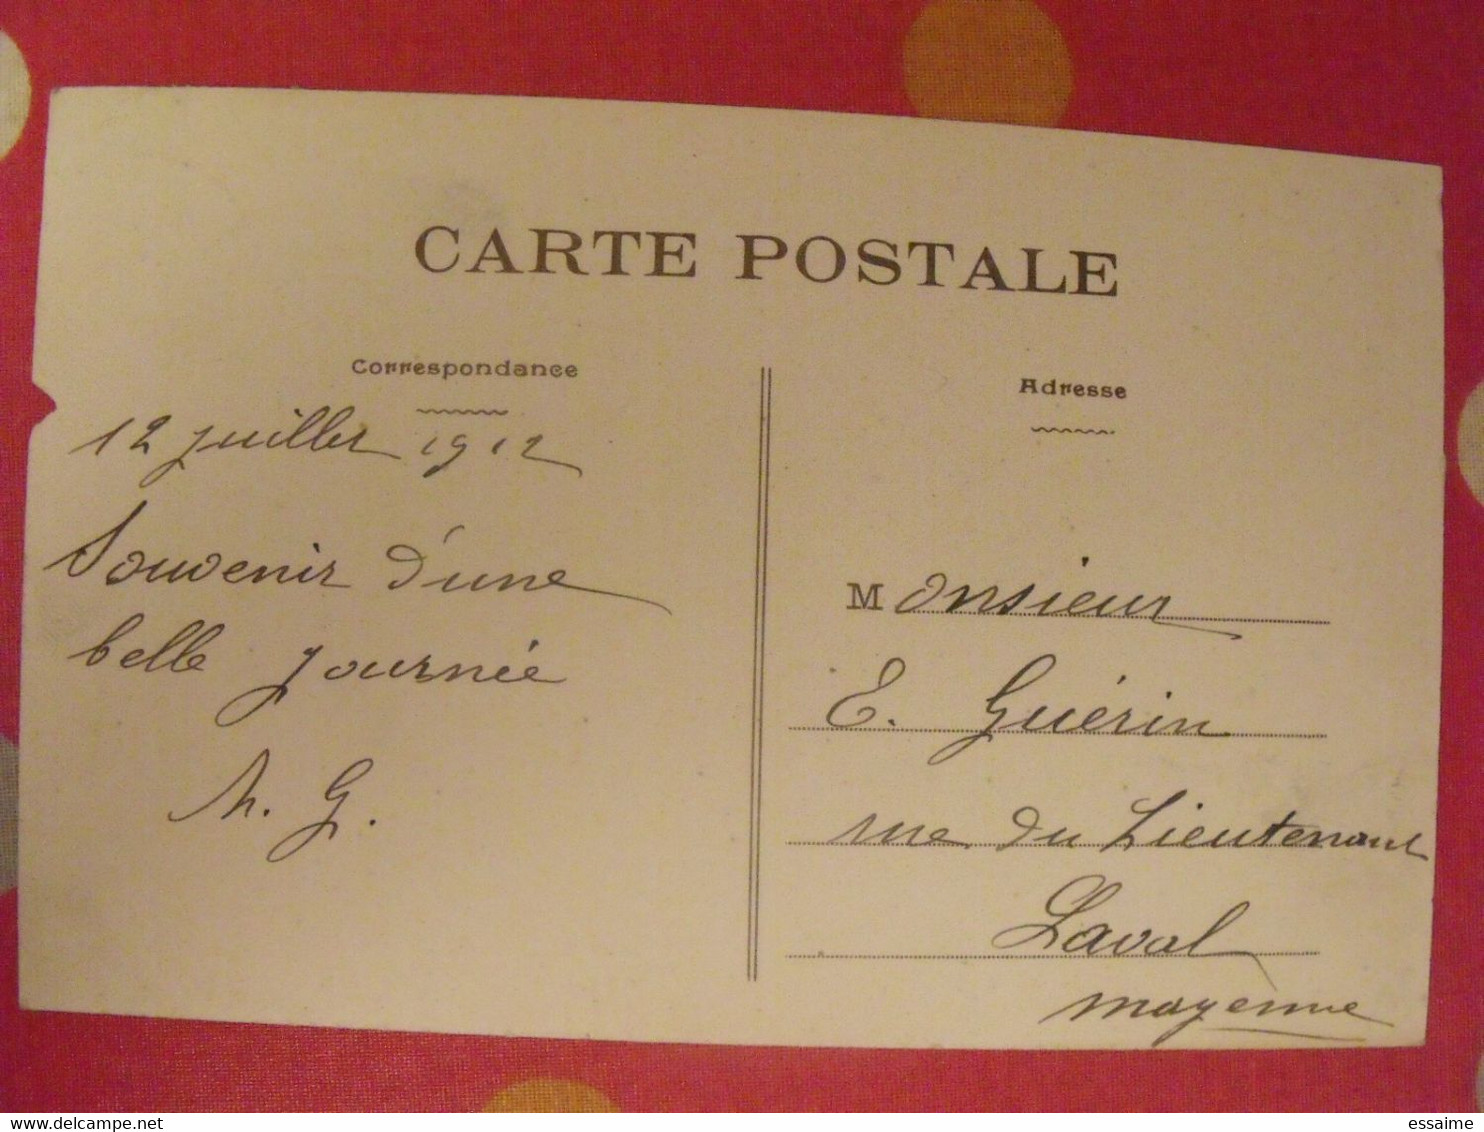 CARTE POSTALE
Correspondance
12 juillet 1912
Souvenir d'une
belle journée
A. G.
Adresse
Monsieur
E. Guérin
rue du Lieutenant
Laval
Mayenne
essaime